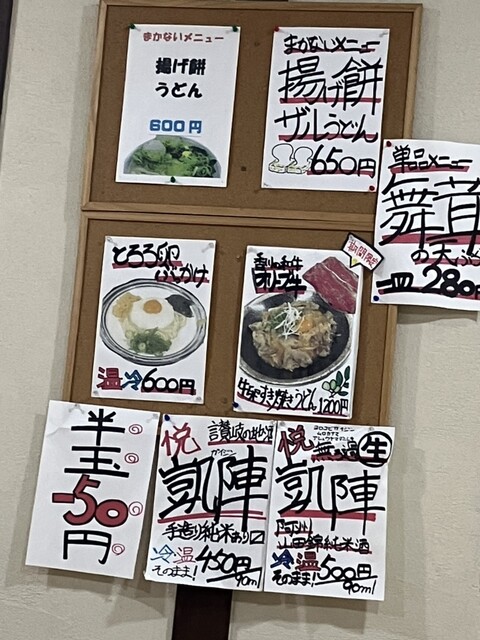 まかないメニュー
揚げ餅
うどん
600円
まかないメニュー
揚げ餅
ザルうどん
650円
単品メニュー
舞茸
お天ぷ
一皿280円
とろろ卵
ぶっかけ
温冷600円
期間限定
香川の和牛
オリーブ牛
牛すき焼きうどん1200円
半
玉
-50
円
悦
讃岐の地酒
ガイジン
凱陣
手造り純米あり
冷温
そのまま!
450円/90ml
悦
無ろ過
生
凱陣
阿州
山田錦純米酒
冷温
そのまま!
500円/90ml